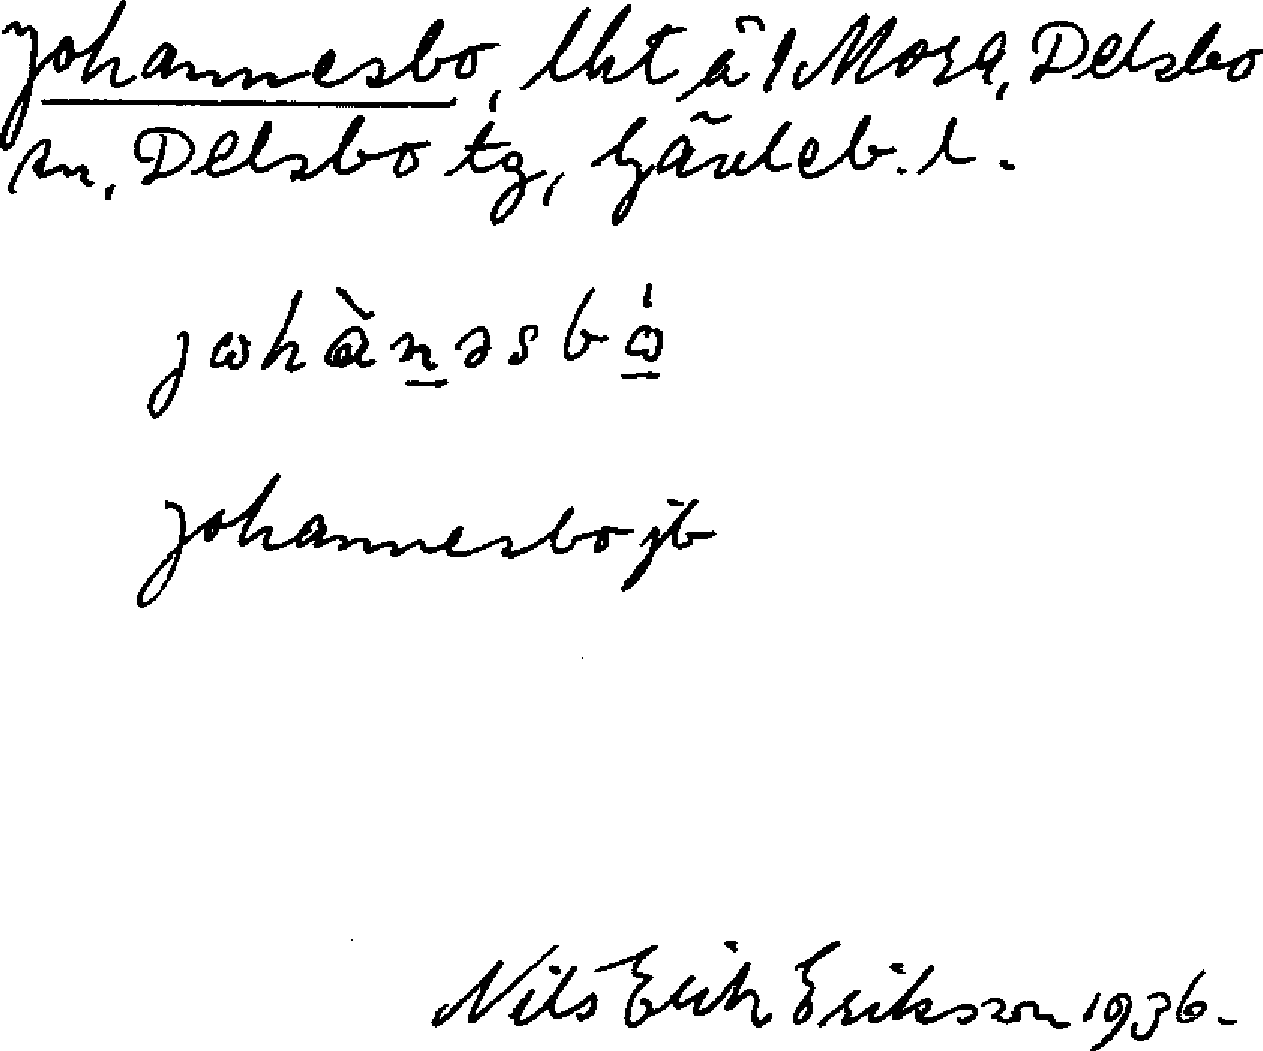 Johannesbo, lht å 1 Mora, Delsbo
sn, Delsbo tg, Gävleb. l.
jωhànəsbώ
Johannesbo jb
Nils Erik Eriksson 1936.